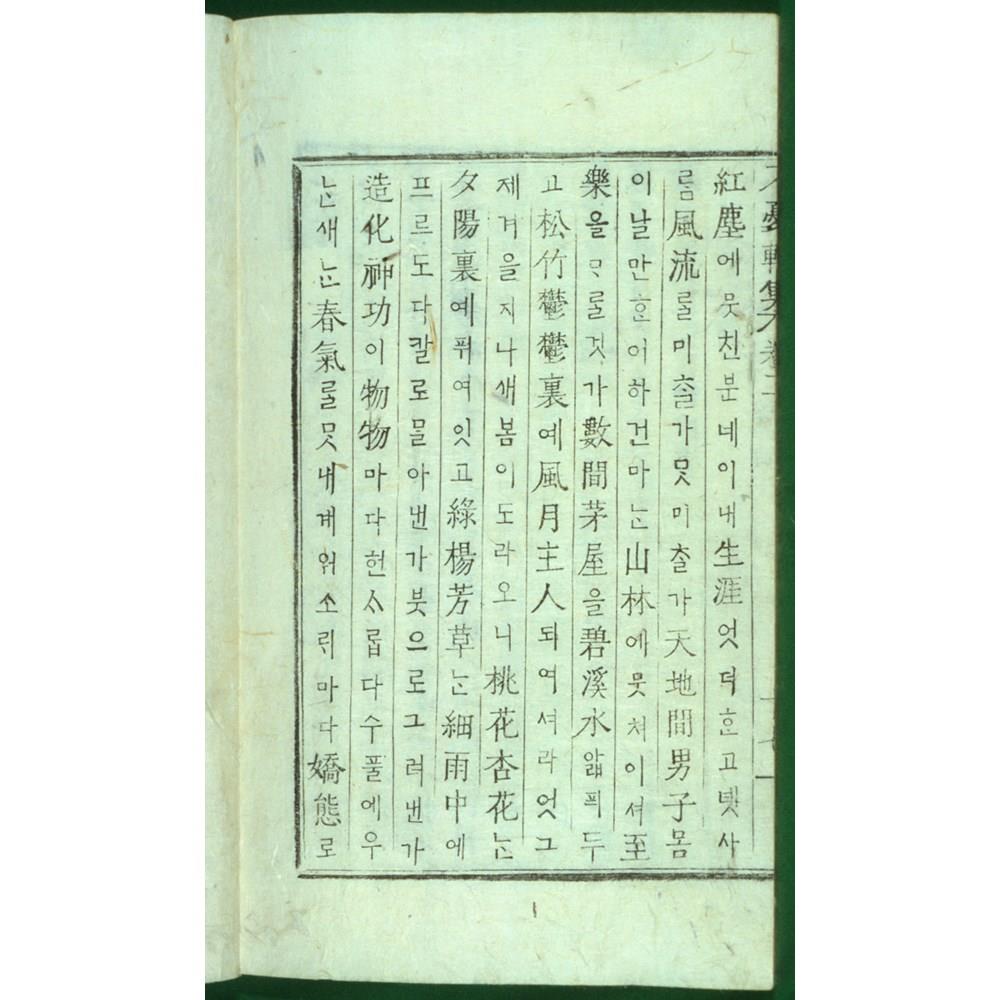 憂軒集 卷二
紅塵에뭇친분네이내生涯엇더ᄒᆞᆫ고녯사
름風流ᄅᆞᆯ미ᄎᆞᆯ가ᄆᆞᆺ미ᄎᆞᆯ가天地間男子몸
이날만ᄒᆞᆫ이하건마ᄂᆞᆫ山林에뭇쳐이셔至
樂을ᄆᆞᄅᆞᆯ것가數間茅屋을碧溪水앏픠두
고松竹鬱鬱裏예風月主人되여셔라엇그
제겨을지나새봄이도라오니桃花杏花ᄂᆞᆫ
夕陽裏예퓌여잇고綠楊芳草ᄂᆞᆫ細雨中에
프르도다칼로ᄆᆞᆯ아낸가붓으로그려낸가
造化神功이物物마다헌ᄉᆞ롭다수풀에우
ᄂᆞᆫ새ᄂᆞᆫ春氣ᄅᆞᆯᄆᆞᆺ내계워소ᄅᆡ마다嬌態로